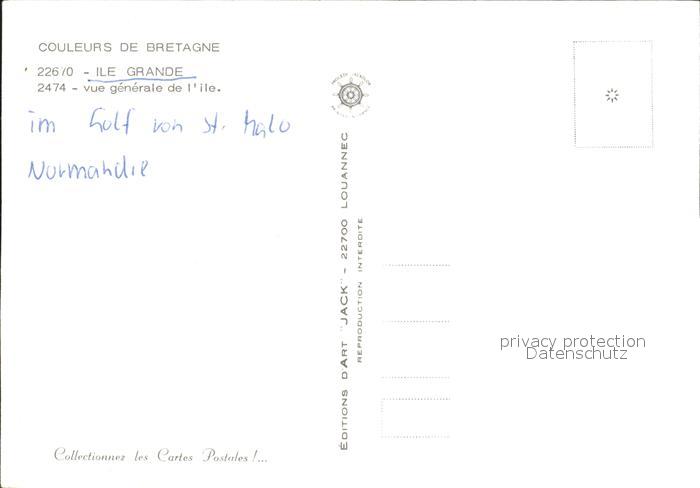 COULEURS DE BRETAGNE
22670 - ILE GRANDE
2474 - vue générale de l'ile.
im Golf von St. Malo
Normandie
ÉDITIONS D'ART "JACK" - 22700 LOUANNEC
REPRODUCTION INTERDITE
privacy protection
Datenschutz
Collectionnez les Cartes Postales !...